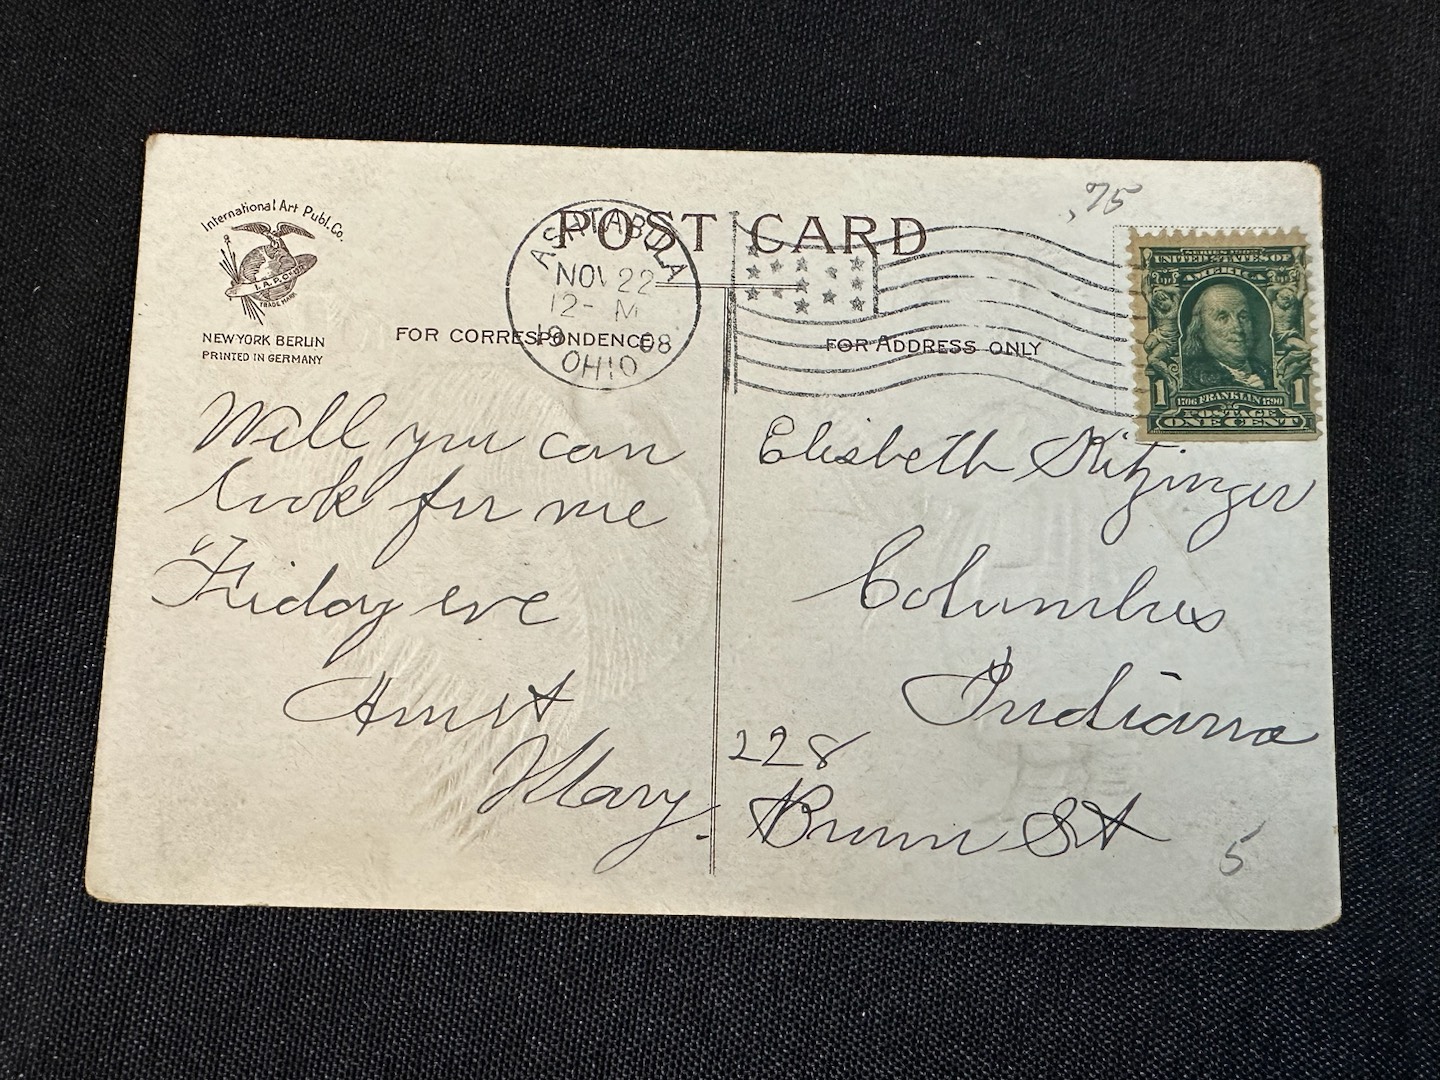 International Art Publ. Co.
I. A. P. Co.
TRADE MARK
NEW YORK BERLIN
PRINTED IN GERMANY
POST CARD
FOR CORRESPONDENCE
FOR ADDRESS ONLY
ASHTABULA
NOV 22
12- M
1908
OHIO
.75
UNITED STATES OF
AMERICA
1 1
1706 FRANKLIN 1790
POSTAGE
ONE CENT
Well you can
look for me
"Friday eve
Aunt
Mary.
Elisbeth Kitzinger
Columbus
Indiana
228
St
5